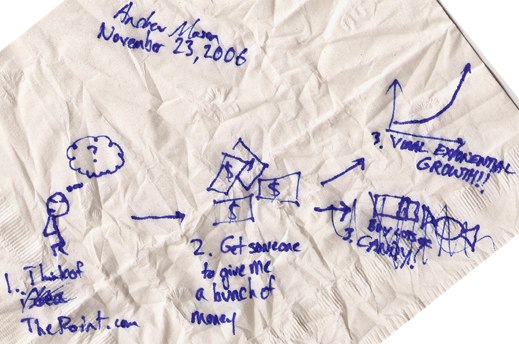 Andrew Mason
November 23, 2006
?
1. Think of
idea
ThePoint.com
$
$
$
2. Get someone
to give me
a bunch of
money
3. VIRAL EXPONENTIAL
GROWTH!!
BUY LOTS OF
3. CANDY!